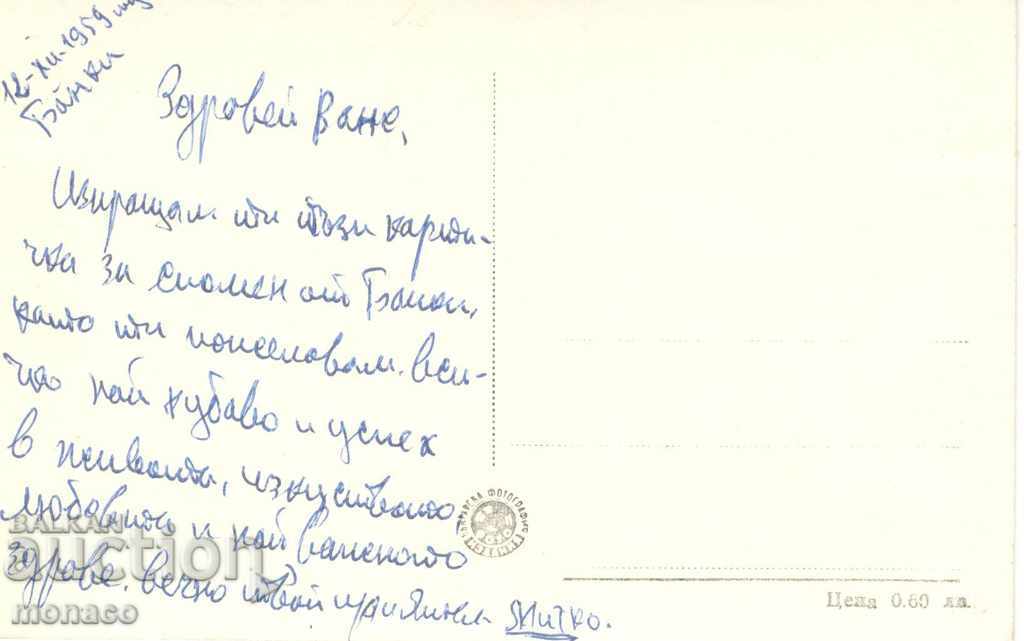 12-XII-1959
Банки
Здровей Ване,
Изпращам ти тъзи карти-
чка за спомен от Банки,
като ти пожеловам. вси-
чко най хубаво и успех
в живота, изкуството
любовта и най важното
здраве. вечно твой приятел Митко.
БЪЛГАРСКА ФОТОГРАФИЯ
Цена 0.60 лв.
BALKAN
auction
monaco